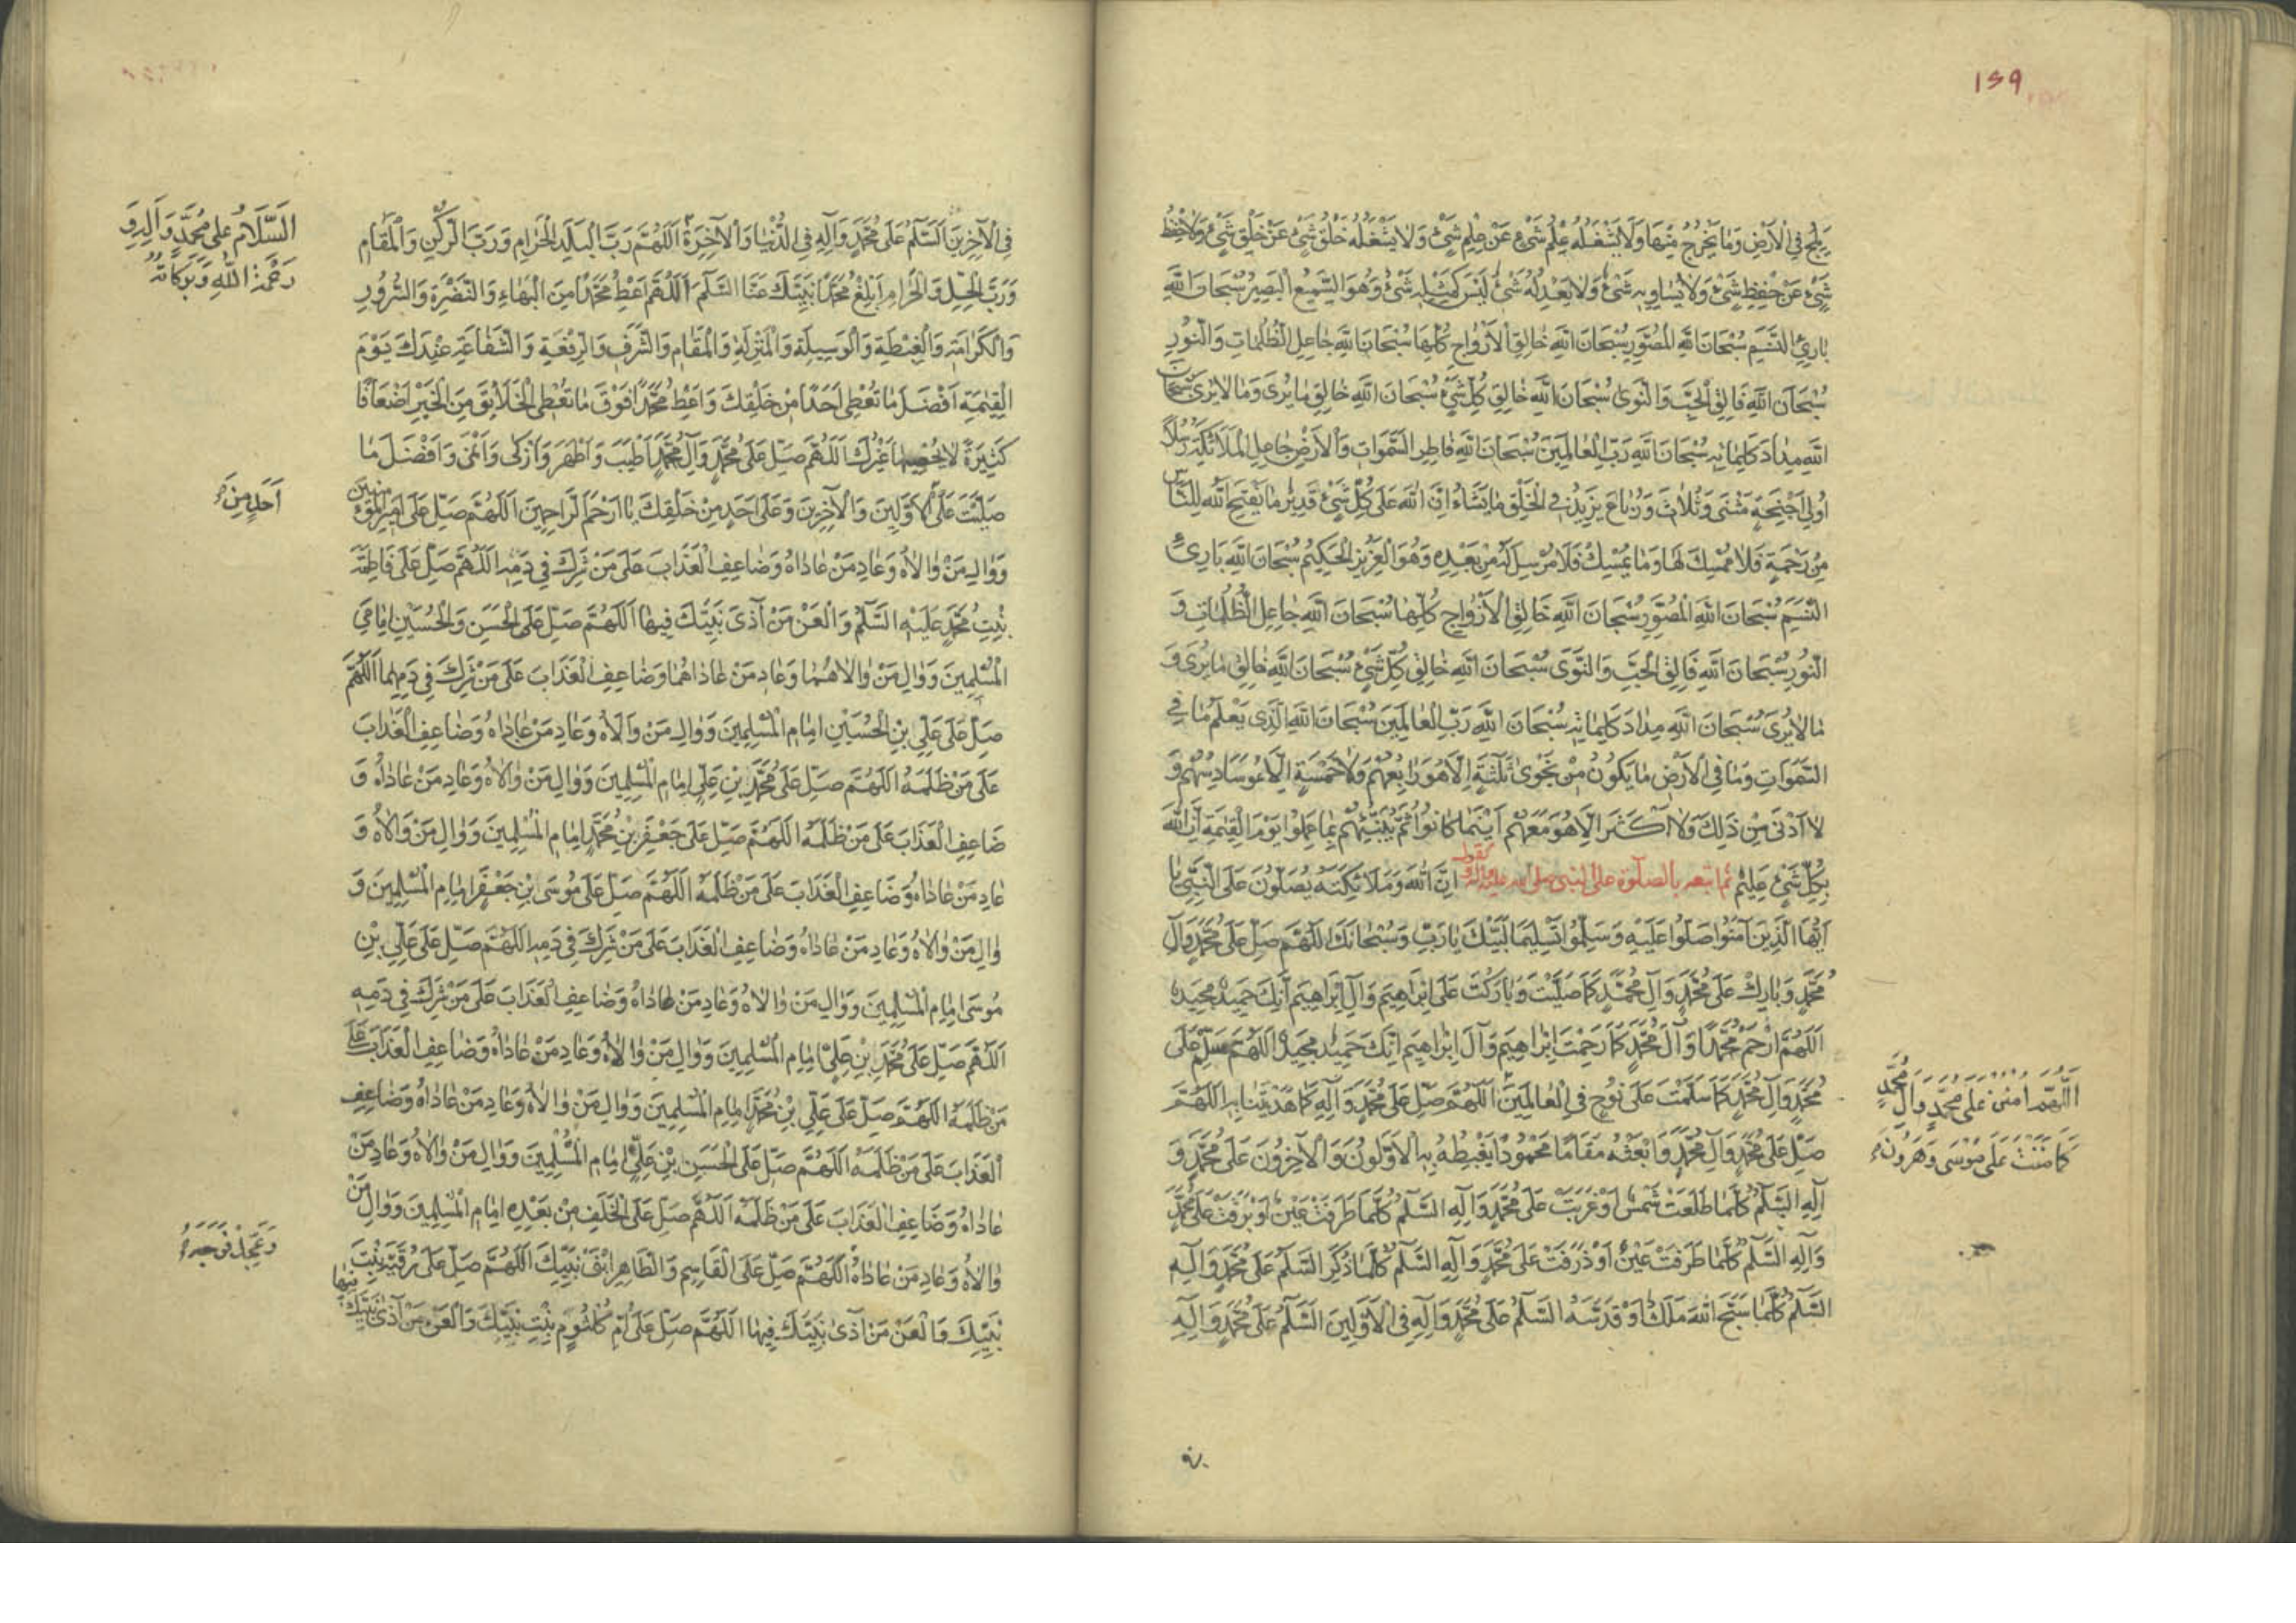 ١٥٩
يَلِجُ فِي الْأَرْضِ وَمَا يَخْرُجُ مِنْهَا وَلَا يَشْغَلُهُ عِلْمُ شَيْءٍ عَنْ عِلْمِ شَيْءٍ وَلَا يَشْغَلُهُ خَلْقُ شَيْءٍ عَنْ خَلْقِ شَيْءٍ وَلَا حِفْظُ
شَيْءٍ عَنْ حِفْظِ شَيْءٍ وَلَا يُسَاوِيهِ شَيْءٌ وَلَا يَعْدِلُهُ شَيْءٌ لَيْسَ كَمِثْلِهِ شَيْءٌ وَهُوَ السَّمِيعُ الْبَصِيرُ سُبْحَانَ اللَّهِ
بَارِئِ النَّسَمِ سُبْحَانَ اللَّهِ الْمُصَوِّرِ سُبْحَانَ اللَّهِ خَالِقِ الْأَزْوَاجِ كُلِّهَا سُبْحَانَ اللَّهِ جَاعِلِ الظُّلُمَاتِ وَالنُّورِ
سُبْحَانَ اللَّهِ فَالِقِ الْحَبِّ وَالنَّوَى سُبْحَانَ اللَّهِ خَالِقِ كُلِّ شَيْءٍ سُبْحَانَ اللَّهِ خَالِقِ مَا يُرَى وَمَا لَا يُرَى سُبْحَانَ
اللَّهِ مِدَادَ كَلِمَاتِهِ سُبْحَانَ اللَّهِ رَبِّ الْعَالَمِينَ سُبْحَانَ اللَّهِ فَاطِرِ السَّمَوَاتِ وَالْأَرْضِ جَاعِلِ الْمَلَائِكَةِ رُسُلًا
أُولِي أَجْنِحَةٍ مَثْنَى وَثُلَاثَ وَرُبَاعَ يَزِيدُ فِي الْخَلْقِ مَا يَشَاءُ إِنَّ اللَّهَ عَلَى كُلِّ شَيْءٍ قَدِيرٌ مَا يَفْتَحِ اللَّهُ لِلنَّاسِ
مِنْ رَحْمَةٍ فَلَا مُمْسِكَ لَهَا وَمَا يُمْسِكْ فَلَا مُرْسِلَ لَهُ مِنْ بَعْدِهِ وَهُوَ الْعَزِيزُ الْحَكِيمُ سُبْحَانَ اللَّهِ بَارِئِ
النَّسَمِ سُبْحَانَ اللَّهِ الْمُصَوِّرِ سُبْحَانَ اللَّهِ خَالِقِ الْأَزْوَاجِ كُلِّهَا سُبْحَانَ اللَّهِ جَاعِلِ الظُّلُمَاتِ وَ
النُّورِ سُبْحَانَ اللَّهِ فَالِقِ الْحَبِّ وَالنَّوَى سُبْحَانَ اللَّهِ خَالِقِ كُلِّ شَيْءٍ سُبْحَانَ اللَّهِ خَالِقِ مَا يُرَى وَ
مَا لَا يُرَى سُبْحَانَ اللَّهِ مِدَادَ كَلِمَاتِهِ سُبْحَانَ اللَّهِ رَبِّ الْعَالَمِينَ سُبْحَانَ اللَّهِ الَّذِي يَعْلَمُ مَا فِي
السَّمَوَاتِ وَمَا فِي الْأَرْضِ مَا يَكُونُ مِنْ نَجْوَى ثَلَاثَةٍ إِلَّا هُوَ رَابِعُهُمْ وَلَا خَمْسَةٍ إِلَّا هُوَ سَادِسُهُمْ وَ
لَا أَدْنَى مِنْ ذَلِكَ وَلَا أَكْثَرَ إِلَّا هُوَ مَعَهُمْ أَيْنَمَا كَانُوا ثُمَّ يُنَبِّئُهُمْ بِمَا عَمِلُوا يَوْمَ الْقِيَمَةِ إِنَّ اللَّهَ
بِكُلِّ شَيْءٍ عَلِيمٌ ثم اتبعه بالصلوة على النبي صلى الله عليه وآله إِنَّ اللَّهَ وَمَلَائِكَتَهُ يُصَلُّونَ عَلَى النَّبِيِّ يَا
أَيُّهَا الَّذِينَ آمَنُوا صَلُّوا عَلَيْهِ وَسَلِّمُوا تَسْلِيمًا لَبَّيْكَ يَا رَبِّ وَسُبْحَانَكَ اللَّهُمَّ صَلِّ عَلَى مُحَمَّدٍ وَآلِ
مُحَمَّدٍ وَبَارِكْ عَلَى مُحَمَّدٍ وَآلِ مُحَمَّدٍ كَمَا صَلَّيْتَ وَبَارَكْتَ عَلَى إِبْرَاهِيمَ وَآلِ إِبْرَاهِيمَ إِنَّكَ حَمِيدٌ مَجِيدٌ
اللَّهُمَّ ارْحَمْ مُحَمَّدًا وَآلَ مُحَمَّدٍ كَمَا رَحِمْتَ إِبْرَاهِيمَ وَآلَ إِبْرَاهِيمَ إِنَّكَ حَمِيدٌ مَجِيدٌ اللَّهُمَّ سَلِّمْ عَلَى
مُحَمَّدٍ وَآلِ مُحَمَّدٍ كَمَا سَلَّمْتَ عَلَى نُوحٍ فِي الْعَالَمِينَ اللَّهُمَّ صَلِّ عَلَى مُحَمَّدٍ وَآلِهِ كَمَا هَدَيْتَنَا بِهِ اللَّهُمَّ
صَلِّ عَلَى مُحَمَّدٍ وَآلِ مُحَمَّدٍ وَابْعَثْهُ مَقَامًا مَحْمُودًا يَغْبِطُهُ بِهِ الْأَوَّلُونَ وَالْآخِرُونَ عَلَى مُحَمَّدٍ وَ
آلِهِ السَّلَمُ كُلَّمَا طَلَعَتْ شَمْسٌ أَوْ غَرَبَتْ عَلَى مُحَمَّدٍ وَآلِهِ السَّلَمُ كُلَّمَا طَرَفَتْ عَيْنٌ أَوْ بَرَقَتْ عَلَى مُحَمَّدٍ
وَآلِهِ السَّلَمُ كُلَّمَا طَرَفَتْ عَيْنٌ أَوْ ذَرَفَتْ عَلَى مُحَمَّدٍ وَآلِهِ السَّلَمُ كُلَّمَا ذُكِرَ السَّلَمُ عَلَى مُحَمَّدٍ وَآلِهِ
السَّلَمُ كُلَّمَا سَبَّحَ اللَّهَ مَلَكٌ أَوْ قَدَّسَهُ السَّلَمُ عَلَى مُحَمَّدٍ وَآلِهِ فِي الْأَوَّلِينَ السَّلَمُ عَلَى مُحَمَّدٍ وَآلِهِ
اللَّهُمَّ امْنُنْ عَلَى مُحَمَّدٍ وَآلِ مُحَمَّدٍ
كَمَا مَنَنْتَ عَلَى مُوسَى وَهَرُونَ
في
فِي الْآخِرِينَ السَّلَمُ عَلَى مُحَمَّدٍ وَآلِهِ فِي الدُّنْيَا وَالْآخِرَةِ اللَّهُمَّ رَبَّ الْبَلَدِ الْحَرَامِ وَرَبَّ الرُّكْنِ وَالْمَقَامِ
وَرَبَّ الْحِلِّ وَالْحَرَامِ أَبْلِغْ مُحَمَّدًا نَبِيَّكَ عَنَّا السَّلَمَ اللَّهُمَّ أَعْطِ مُحَمَّدًا مِنَ الْبَهَاءِ وَالنَّضْرَةِ وَالسُّرُورِ
وَالْكَرَامَةِ وَالْغِبْطَةِ وَالْوَسِيلَةِ وَالْمَنْزِلَةِ وَالْمَقَامِ وَالشَّرَفِ وَالرِّفْعَةِ وَالشَّفَاعَةِ عِنْدَكَ يَوْمَ
الْقِيَمَةِ أَفْضَلَ مَا تُعْطِي أَحَدًا مِنْ خَلْقِكَ وَأَعْطِ مُحَمَّدًا فَوْقَ مَا تُعْطِي الْخَلَائِقَ مِنَ الْخَيْرِ أَضْعَافًا
كَثِيرَةً لَا يُحْصِيهَا غَيْرُكَ اللَّهُمَّ صَلِّ عَلَى مُحَمَّدٍ وَآلِ مُحَمَّدٍ أَطْيَبَ وَأَطْهَرَ وَأَزْكَى وَأَنْمَى وَأَفْضَلَ مَا
صَلَّيْتَ عَلَى الْأَوَّلِينَ وَالْآخِرِينَ وَعَلَى أَحَدٍ مِنْ خَلْقِكَ يَا أَرْحَمَ الرَّاحِمِينَ اللَّهُمَّ صَلِّ عَلَى أَمِيرِ الْمُؤْمِنِينَ
وَوَالِ مَنْ وَالَاهُ وَعَادِ مَنْ عَادَاهُ وَضَاعِفِ الْعَذَابَ عَلَى مَنْ شَرِكَ فِي دَمِهِ اللَّهُمَّ صَلِّ عَلَى فَاطِمَةَ
بِنْتِ مُحَمَّدٍ عَلَيْهِ السَّلَمُ وَالْعَنْ مَنْ آذَى نَبِيَّكَ فِيهَا اللَّهُمَّ صَلِّ عَلَى الْحَسَنِ وَالْحُسَيْنِ إِمَامَيِ
الْمُسْلِمِينَ وَوَالِ مَنْ وَالَاهُمَا وَعَادِ مَنْ عَادَاهُمَا وَضَاعِفِ الْعَذَابَ عَلَى مَنْ شَرِكَ فِي دَمِهِمَا اللَّهُمَّ
صَلِّ عَلَى عَلِيِّ بْنِ الْحُسَيْنِ إِمَامِ الْمُسْلِمِينَ وَوَالِ مَنْ وَالَاهُ وَعَادِ مَنْ عَادَاهُ وَضَاعِفِ الْعَذَابَ
عَلَى مَنْ ظَلَمَهُ اللَّهُمَّ صَلِّ عَلَى مُحَمَّدِ بْنِ عَلِيٍّ إِمَامِ الْمُسْلِمِينَ وَوَالِ مَنْ وَالَاهُ وَعَادِ مَنْ عَادَاهُ وَ
ضَاعِفِ الْعَذَابَ عَلَى مَنْ ظَلَمَهُ اللَّهُمَّ صَلِّ عَلَى جَعْفَرِ بْنِ مُحَمَّدٍ إِمَامِ الْمُسْلِمِينَ وَوَالِ مَنْ وَالَاهُ وَ
عَادِ مَنْ عَادَاهُ وَضَاعِفِ الْعَذَابَ عَلَى مَنْ ظَلَمَهُ اللَّهُمَّ صَلِّ عَلَى مُوسَى بْنِ جَعْفَرٍ إِمَامِ الْمُسْلِمِينَ وَ
وَالِ مَنْ وَالَاهُ وَعَادِ مَنْ عَادَاهُ وَضَاعِفِ الْعَذَابَ عَلَى مَنْ شَرِكَ فِي دَمِهِ اللَّهُمَّ صَلِّ عَلَى عَلِيِّ بْنِ
مُوسَى إِمَامِ الْمُسْلِمِينَ وَوَالِ مَنْ وَالَاهُ وَعَادِ مَنْ عَادَاهُ وَضَاعِفِ الْعَذَابَ عَلَى مَنْ شَرِكَ فِي دَمِهِ
اللَّهُمَّ صَلِّ عَلَى مُحَمَّدِ بْنِ عَلِيٍّ إِمَامِ الْمُسْلِمِينَ وَوَالِ مَنْ وَالَاهُ وَعَادِ مَنْ عَادَاهُ وَضَاعِفِ الْعَذَابَ عَلَى
مَنْ ظَلَمَهُ اللَّهُمَّ صَلِّ عَلَى عَلِيِّ بْنِ مُحَمَّدٍ إِمَامِ الْمُسْلِمِينَ وَوَالِ مَنْ وَالَاهُ وَعَادِ مَنْ عَادَاهُ وَضَاعِفِ
الْعَذَابَ عَلَى مَنْ ظَلَمَهُ اللَّهُمَّ صَلِّ عَلَى الْحَسَنِ بْنِ عَلِيٍّ إِمَامِ الْمُسْلِمِينَ وَوَالِ مَنْ وَالَاهُ وَعَادِ مَنْ
عَادَاهُ وَضَاعِفِ الْعَذَابَ عَلَى مَنْ ظَلَمَهُ اللَّهُمَّ صَلِّ عَلَى الْخَلَفِ مِنْ بَعْدِهِ إِمَامِ الْمُسْلِمِينَ وَوَالِ مَنْ
وَالَاهُ وَعَادِ مَنْ عَادَاهُ اللَّهُمَّ صَلِّ عَلَى الْقَاسِمِ وَالطَّاهِرِ ابْنَيْ نَبِيِّكَ اللَّهُمَّ صَلِّ عَلَى رُقَيَّةَ بِنْتِ
نَبِيِّكَ وَالْعَنْ مَنْ آذَى نَبِيَّكَ فِيهَا اللَّهُمَّ صَلِّ عَلَى أُمِّ كُلْثُومٍ بِنْتِ نَبِيِّكَ وَالْعَنْ مَنْ آذَى نَبِيَّكَ فِيهَا
السَّلَامُ عَلَى مُحَمَّدٍ وَآلِهِ وَ
رَحْمَةُ اللَّهِ وَبَرَكَاتُهُ
أَحَدٍ مِنَ
وَعَجِّلْ فَرَجَهُ